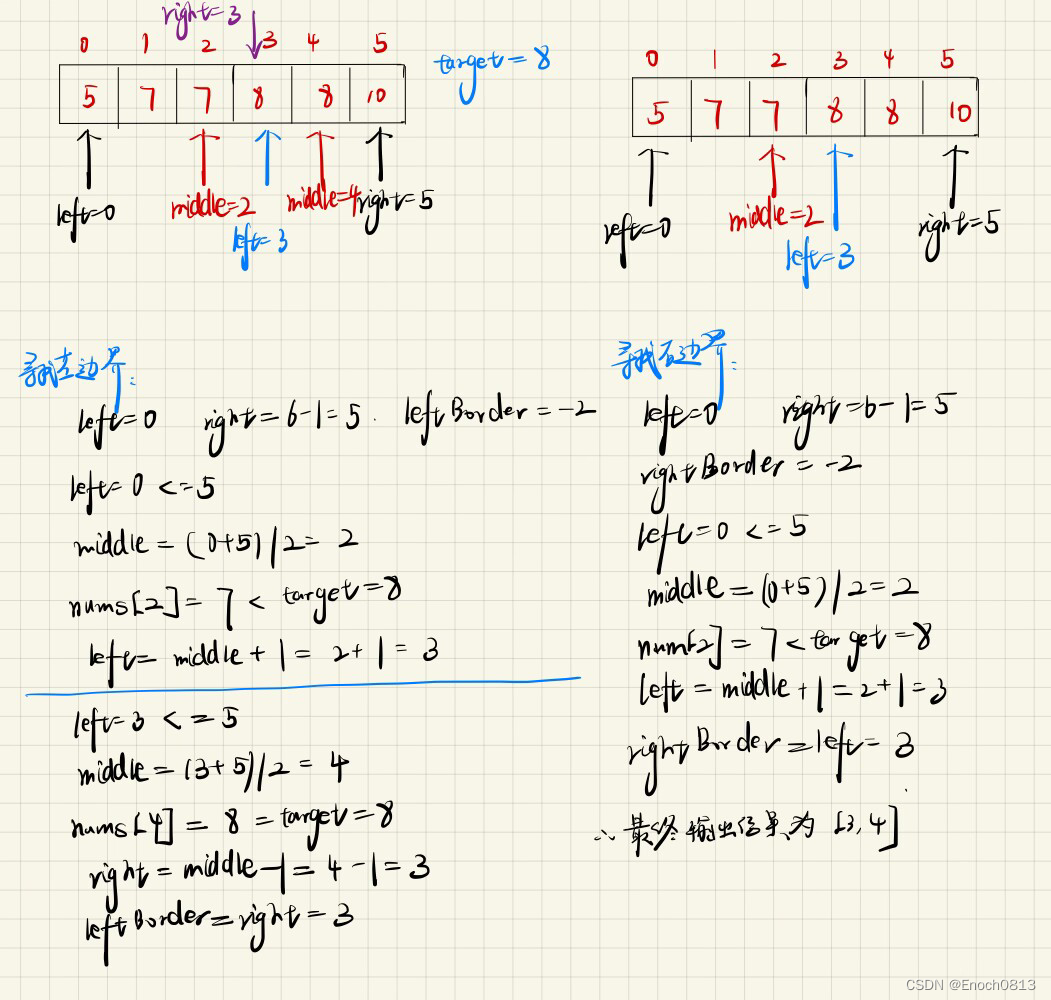 right=3
0 1 2 3 4 5
5 7 7 8 8 10
target=8
left=0 middle=2 middle=4 right=5
left=3
0 1 2 3 4 5
5 7 7 8 8 10
left=0 middle=2 right=5
left=3
寻找左边界:
left=0 right=6-1=5. leftBorder=-2
left=0 <=5
middle=(0+5)/2=2
nums[2]=7< target=8
left=middle+1=2+1=3
left=3 <=5
middle=(3+5)/2=4
nums[4]=8=target=8
right=middle-1=4-1=3
leftBorder=right=3
寻找右边界:
left=0 right=6-1=5
rightBorder=-2
left=0 <=5
middle=(0+5)/2=2
nums[2]=7<target=8
left=middle+1=2+1=3
rightBorder=left=3
∴最终输出结果为[3,4]
CSDN @Enoch0813